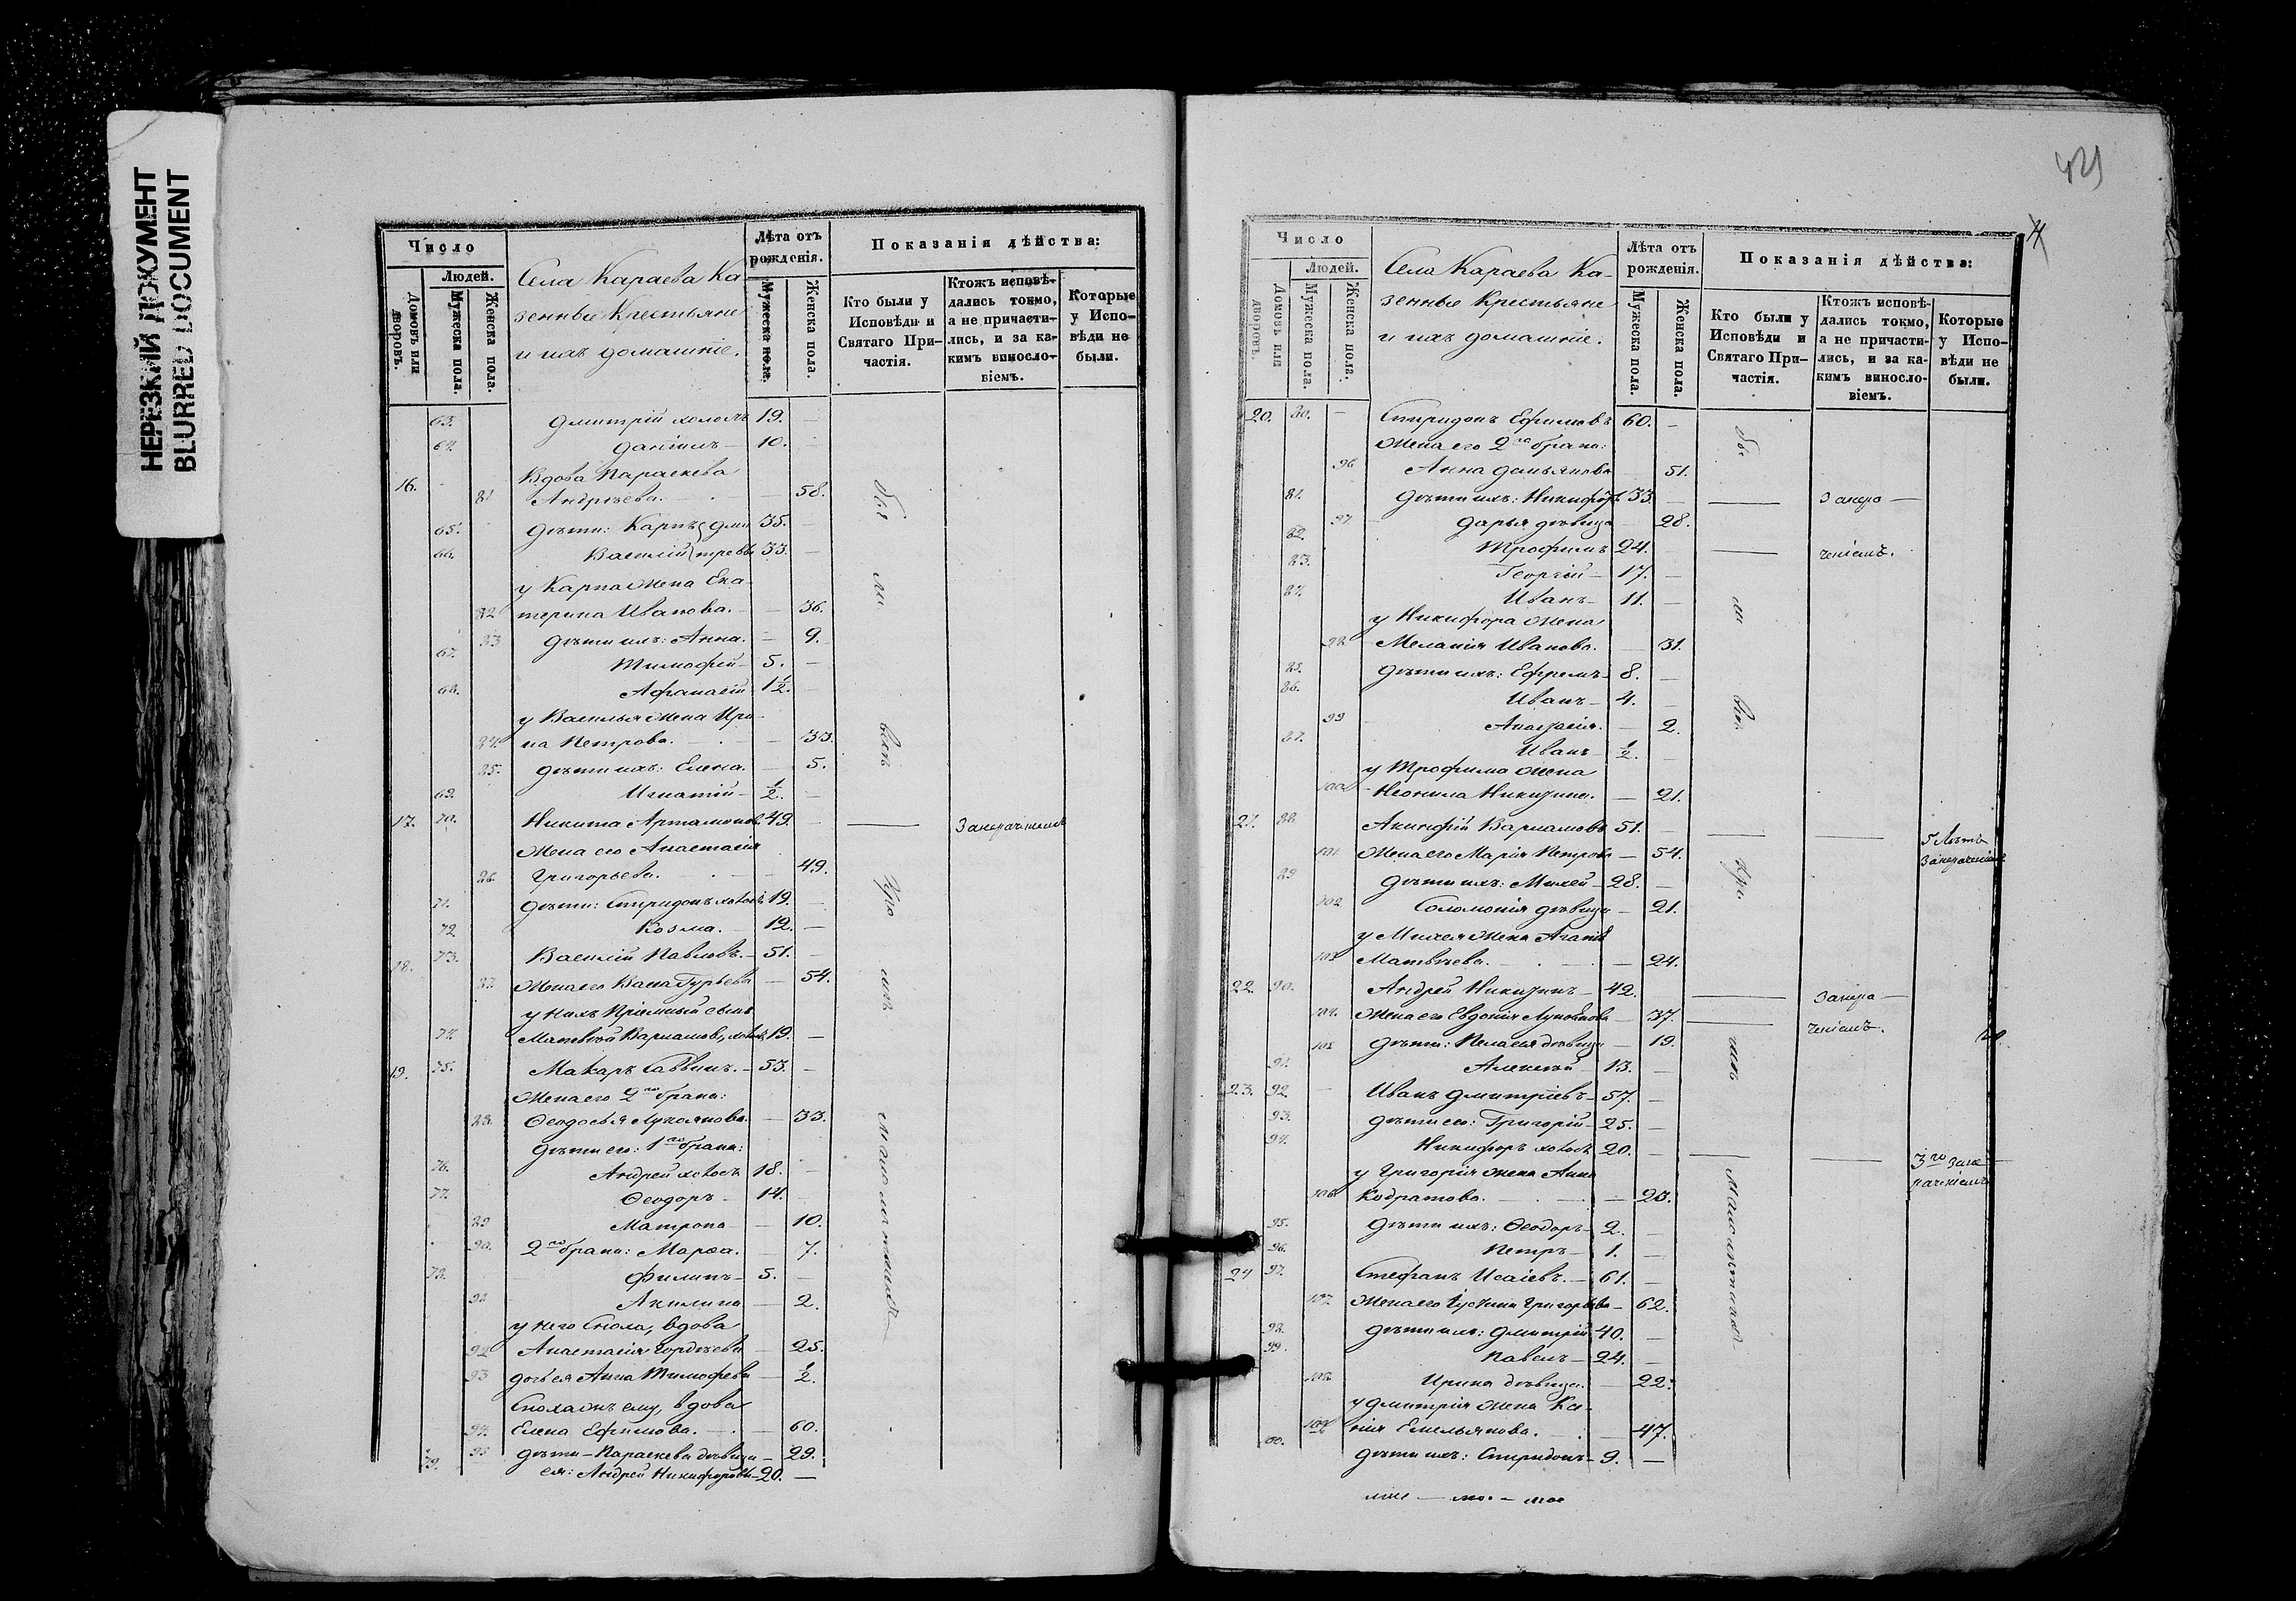 НЕРЕЗКИЙ ДОКУМЕНТ
BLURRED DOCUMENT
Число
Людей.
Домовъ или дворовъ.
Мужеска пола.
Женска пола.
Села Караева Ка-
зенные Крестьяне
и ихъ домашніе.
Лѣта отъ рожденія.
Мужеска пола.
Женска пола.
Показанія дѣйства:
Кто были у Исповѣди и Святаго При-частія.
Ктожъ исповѣ-дались токмо, а не причасти-лись, и за ка-кимъ винносло-віемъ.
Которые у Испо-вѣди не были.
63. Дмитрій холостъ 19. —
64. Даніилъ — 10.
16. Вдова Параскева
81 Андреева. — 58.
65. Дѣти: Карпъ Дми 35. —
66. Василій тревы 33. —
у Карпа жена Ека-
82 терина Иванова. — 36.
83 Дѣти ихъ: Анна. — 9.
67. Тимофей — 5. —
68. Афанасій 1 1/2. —
у Василья жена Ири-
84. на Петрова. — 33.
85. Дѣти ихъ: Елена. — 5.
69. Игнатій — 1/2. —
17. 70. Никита Артамонов. 49. — За нерачениемъ
Жена его Анастасія
86. Григорьева. — 49.
71. Дѣти: Спиридонъ холос. 19. —
72 Козма. — 12. —
18. 73. Василій Павловъ. — 51. —
87. Жена его Васса Гурьева — 54.
у нихъ Пріемный сынъ
74. Матвѣй Варламовъ, холос. 19. —
19. 75. Макаръ Саввинъ. — 53. —
Жена его 2го брака:
88. Ѳеодосья Лукоянова. — 33.
Дѣти его: 1го брака:
76. Андрей холостъ 18. —
77. Ѳеодоръ — 14.
89 Матрона — 10.
90. 2го брака: Марѳа. — 7.
78. Филипъ — 5. —
91 Акилина — 2.
у него Сноха, вдова
92 Анастасія Гордѣева — 25.
93 дочь ея Анна Тимофеева — 1/2.
Сноха онъ ему, вдова
94. Елена Ефимова. — 60.
95 Дѣти — Параскева дѣвица — 29.
79. ея: Андрей Никифоровъ — 20. —
бы
ли
вси
при
ихъ
малолѣтнихъ
429
Число
Людей.
Домовъ или дворовъ.
Мужеска пола.
Женска пола.
Села Караева Ка-
зенные Крестьяне
и ихъ домашніе.
Лѣта отъ рожденія.
Мужеска пола.
Женска пола.
Показанія дѣйства:
Кто были у Исповѣди и Святаго При-частія.
Ктожъ исповѣ-дались токмо, а не причасти-лись, и за ка-кимъ винносло-віемъ.
Которые у Испо-вѣди не были.
20. 80. — Спиридонъ Ефимовъ 60. —
Жена его 2го брака:
96 Анна Демьянова 51.
81. Дѣти ихъ: Никифоръ 33. — За нера —
97 Дарья дѣвица 28.
82. Трофимъ 24. — ченіемъ.
83. Георгій — 17. —
84. Иванъ — 11. —
у Никифора жена
98 Меланія Иванова. — 31.
85. Дѣти ихъ: Ефремъ — 8. —
86. Иванъ — 4. —
99 Анастасія. — 2.
87. Иванъ — 1/2. —
у Трофима жена
100 Неонила Никизина. — 21.
21. 88. Акинфій Варламовъ 51. — 5 Лѣтъ
101 Жена его Марія Петрова — 54. За нерачениемъ
89 Дѣти ихъ: Михей — 28. —
102 Соломонія дѣвица — 21.
у Михея жена Агапія
103 Матвѣева. — 24.
22. 90. Андрей Никизинъ — 42. — За нера —
104. Жена его Евдокія Лукоянова — 37. ченіемъ.
105 Дѣти: Пелагея дѣвица — 19.
91. Алексѣй — 13. —
23. 92. Иванъ Дмитріевъ — 57. —
93. Дѣти его: Григорій — 25. —
94. Никифоръ холостъ 20. — 3го за не
у Григорія жена Анна раченіемъ
106 Кодратова. — 23.
95. Дѣти ихъ: Ѳеодоръ — 2. —
96. Петръ — 1. —
24 97. Стефанъ Исаіевъ. — 61. —
107. Жена его Іустина Григорьева — 62.
98. Дѣти ихъ: Дмитрій 40. —
99. Павелъ — 24. —
108 Ирина дѣвица. — 22.
у Дмитрія жена Ксе-
109 нія Емельянова. — 47.
100. Дѣти ихъ: Спиридонъ — 9. —
бы
ли
вси
при
ихъ
малолѣтнихъ